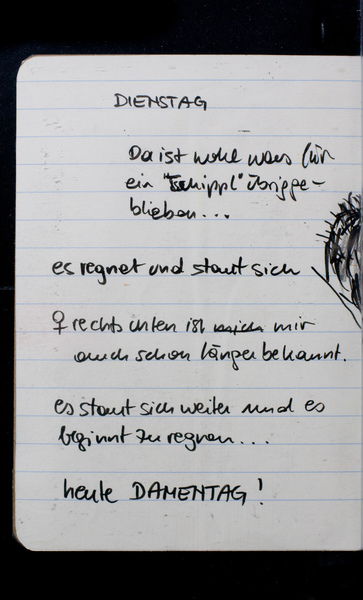 DIENSTAG
Da ist wohl was für
ein "Tschippl" übrigge-
blieben...
es regnet und staut sich
♀ rechts unten ist mir
auch schon länger bekannt.
es staut sich weiter und es
beginnt zu regnen...
heute DAMENTAG!